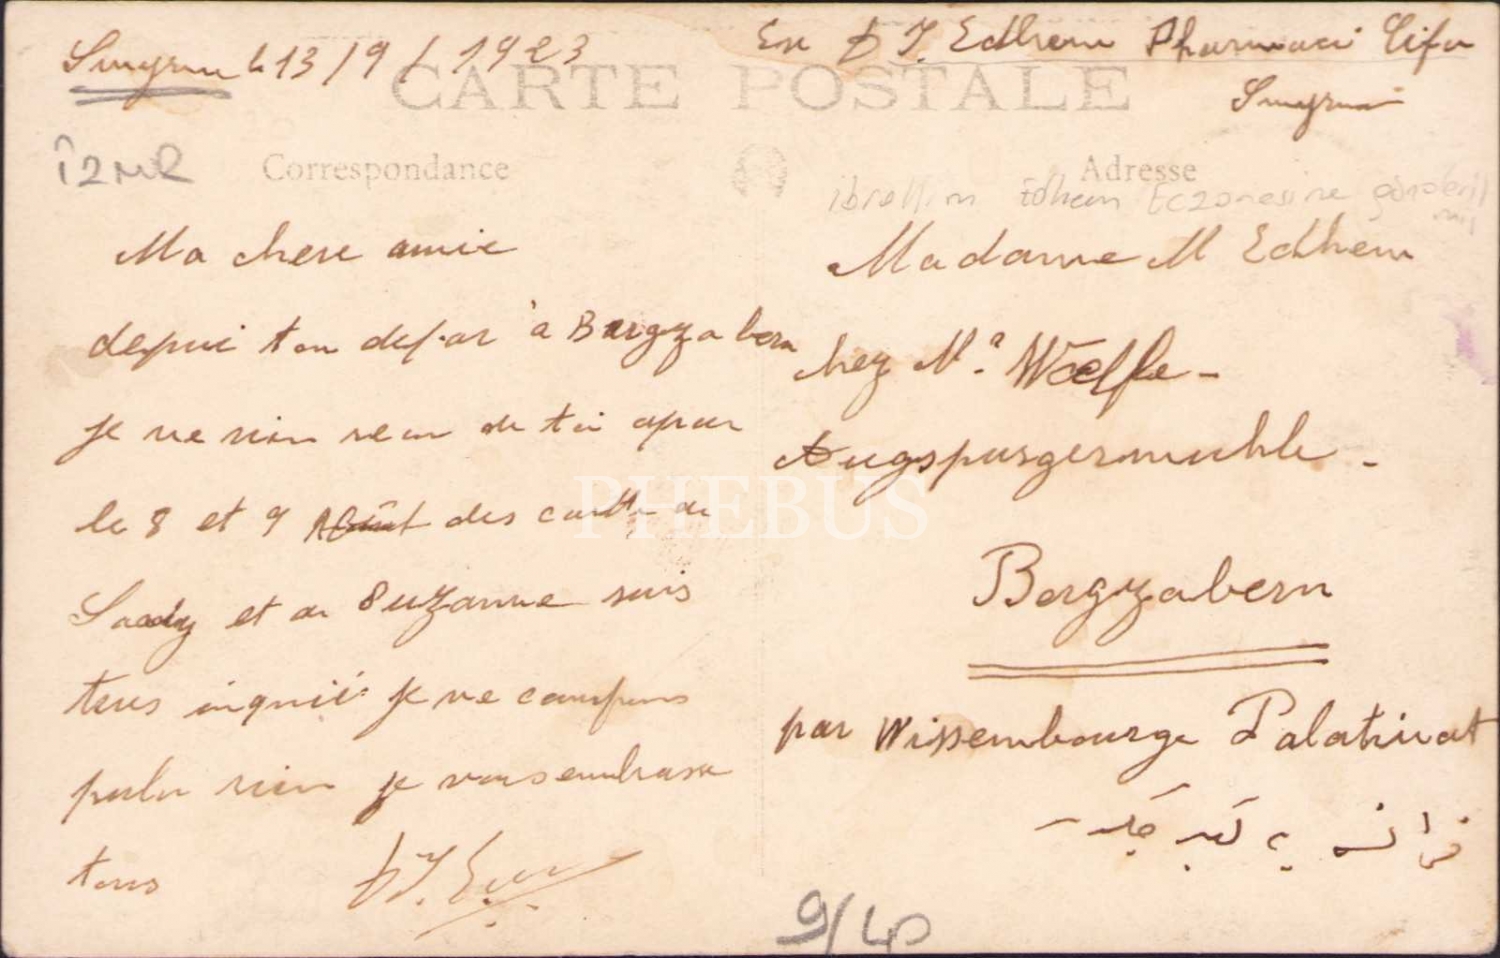 Smyrne le 13/9/1923
Exp Dr I. Edhem Pharmaci
Smyrne
CARTE POSTALE
izmir
Correspondance
Adresse
ibrahim Edhem Eczanesine gönderil
miş
Ma chere amie
depui ton depar à Bergzabern
je ne rien reçu de toi apar
le 8 et 9 Août des carte de
Saady et de Suzanne suis
tres inquié je ne compren
rien je vous embrasse
tous
Madame M Edhem
chez Mr Woelfle -
Augspurgermuhle -
Bergzabern
par Wissembourge Palatinat
فرانسه
9/40
PHEBUS